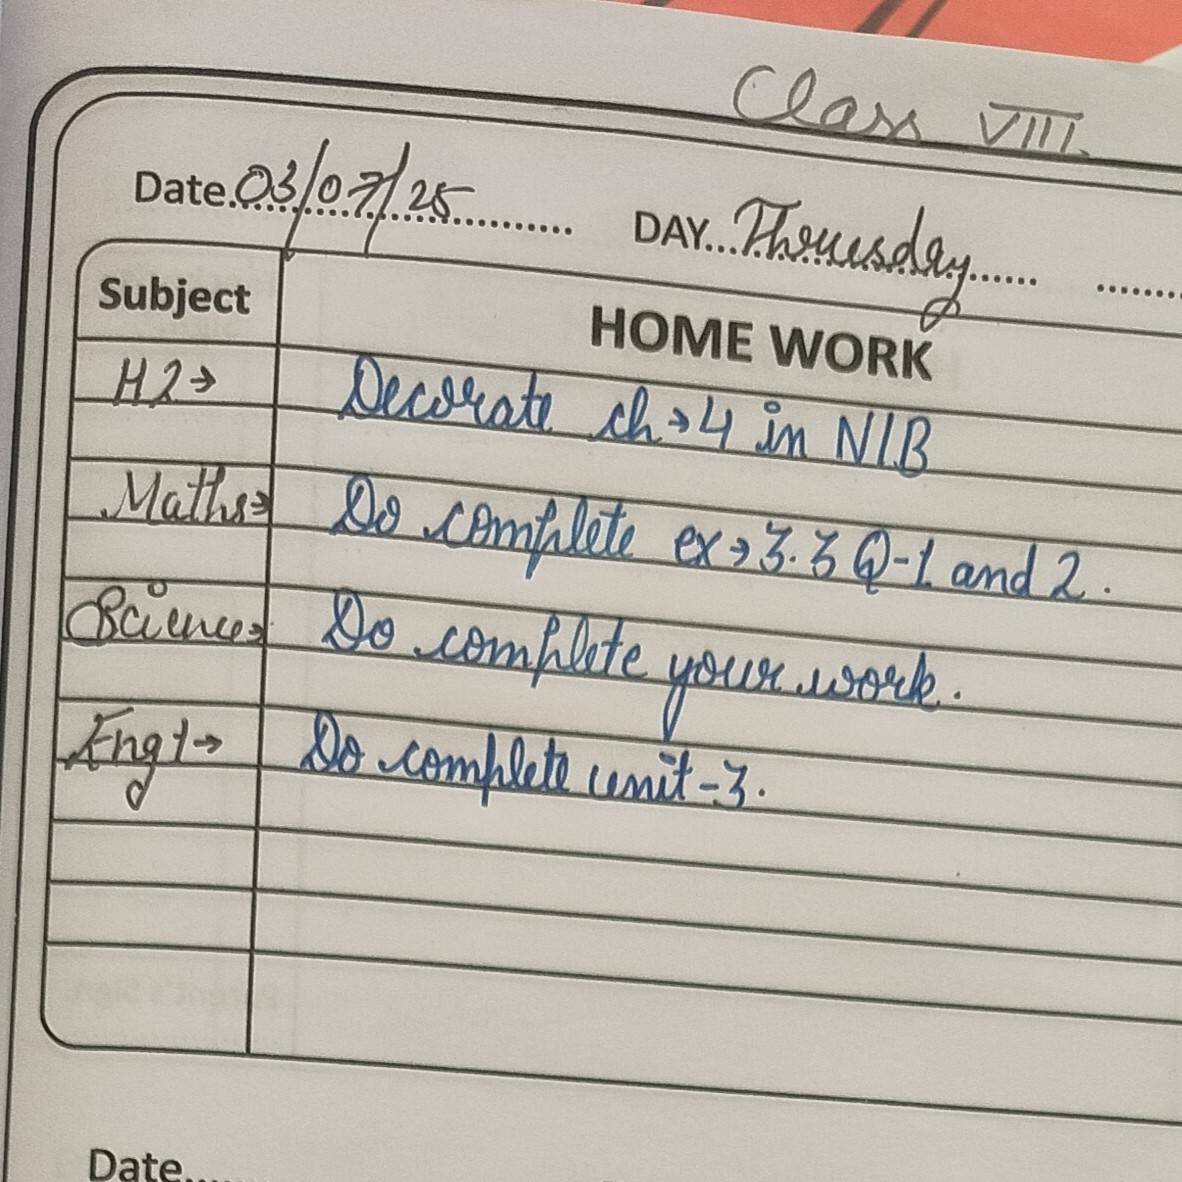 Class VIII.
Date.03/07/25 DAY...Thousday
Subject HOME WORK
H2→ Decorate ch→4 in N/B
Maths→ Do complete ex→3.3 Q-1 and 2.
Science→ Do complete your work.
Eng1→ Do complete unit-3.
Date